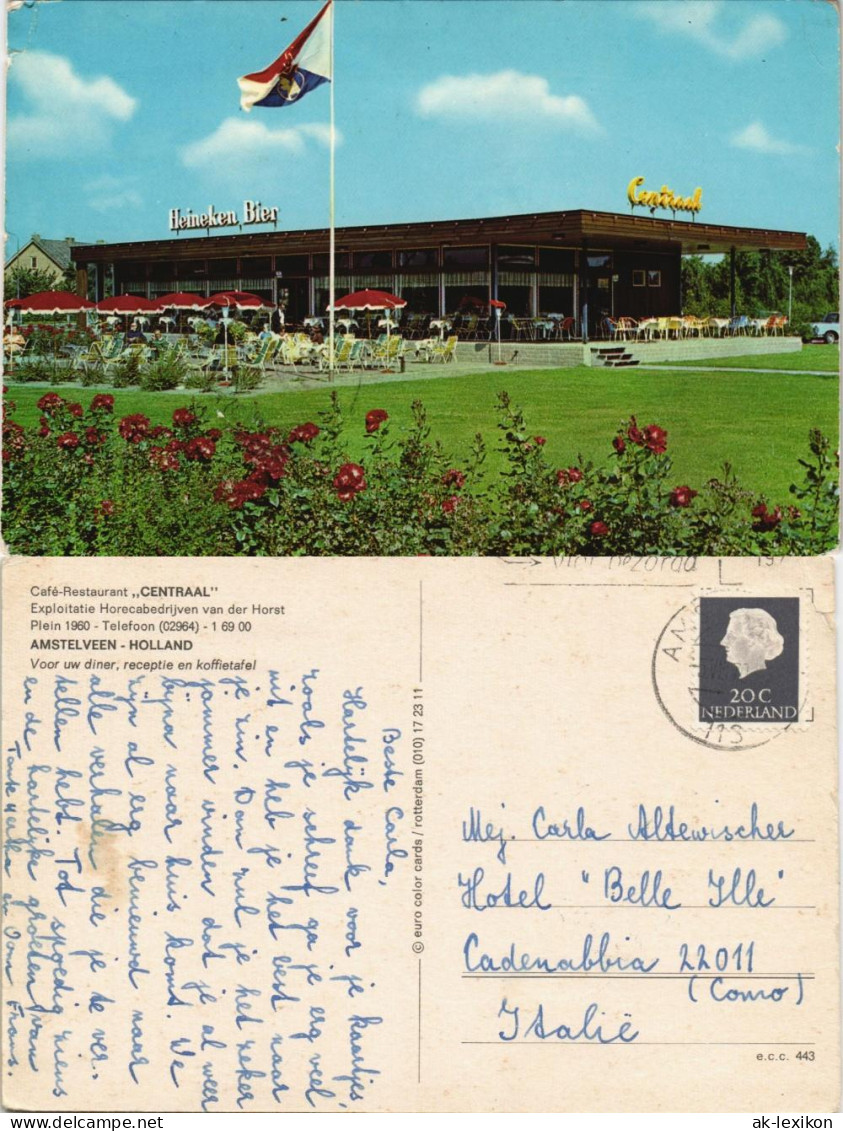 Heineken Bier
Centraal
Café-Restaurant „CENTRAAL"
Exploitatie Horecabedrijven van der Horst
Plein 1960 - Telefoon (02964) - 1 69 00
AMSTELVEEN - HOLLAND
Voor uw diner, receptie en koffietafel
Beste Carla,
Hartelijk dank voor je kaartjes,
zoals je schreef ga je erg veel
uit en heb je het best naar
je zin. Dan zul je het zeker
jammer vinden dat je al weer
bijna naar huis komt. We
zijn al erg benieuwd naar
alle verhalen die je te ver-
tellen hebt. Tot spoedig ziens
en de hartelijke groeten van
Tante en Oom Frans.
© euro color cards / rotterdam (010) 17 23 11
20 C
NEDERLAND
Mej. Carla Altewischer
Hotel "Belle Ille"
Cadenabbia 22011
(Como)
Italië
e.c.c. 443
ak-lexikon